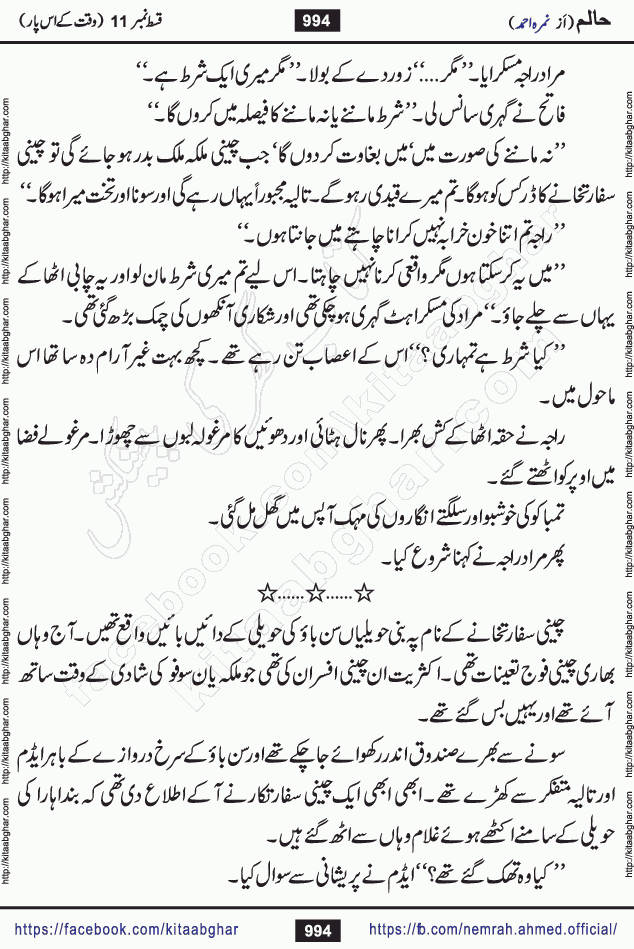 حالم (از نمرہ احمد)
994
قسط نمبر 11 (وقت کے اس پار)
مراد راجہ مسکرایا۔ ’’مگر ....‘‘ زور دے کے بولا۔ ’’مگر میری ایک شرط ہے۔‘‘
فاتح نے گہری سانس لی۔ ’’شرط ماننے یا نہ ماننے کا فیصلہ میں کروں گا۔‘‘
’’نہ ماننے کی صورت میں‘ میں بغاوت کر دوں گا‘ جب چینی ملکہ ملک بدر ہو جائے گی تو چینی
سفارتخانے کا ڈر کس کو ہوگا۔ تم میرے قیدی رہو گے۔ تالیہ مجبوراً یہاں رہے گی اور سونا اور تخت میرا ہوگا۔‘‘
’’راجہ تم اتنا خون خرابہ نہیں کرانا چاہتے میں جانتا ہوں۔‘‘
’’میں یہ کر سکتا ہوں مگر واقعی کرنا نہیں چاہتا۔ اس لیے تم میری شرط مان لو اور یہ چابی اٹھا کے
یہاں سے چلے جاؤ۔‘‘ مراد کی مسکراہٹ گہری ہو چکی تھی اور شکاری آنکھوں کی چمک بڑھ گئی تھی۔
’’کیا شرط ہے تمہاری؟‘‘ اس کے اعصاب تن رہے تھے۔ کچھ بہت غیر آرام دہ سا تھا اس
ماحول میں۔
راجہ نے حقہ اٹھا کے کش بھرا۔ پھر نال ہٹائی اور دھوئیں کا مرغولہ لبوں سے چھوڑا۔ مرغولے فضا
میں اوپر کو اٹھتے گئے۔
تمباکو کی خوشبو اور سلگتے انگاروں کی مہک آپس میں گھل مل گئی۔
پھر مراد راجہ نے کہنا شروع کیا۔
☆......☆......☆
چینی سفارتخانے کے نام پہ بنی حویلیاں سن باؤ کی حویلی کے دائیں بائیں واقع تھیں۔ آج وہاں
بھاری چینی فوج تعینات تھی۔ اکثریت ان چینی افسران کی تھی جو ملکہ یان سوفو کی شادی کے وقت ساتھ
آئے تھے اور یہیں بس گئے تھے۔
سونے سے بھرے صندوق اندر رکھوائے جا چکے تھے اور سن باؤ کے سرخ دروازے کے باہر ایڈم
اور تالیہ متفکر سے کھڑے تھے۔ ابھی ابھی ایک چینی سفارتکار نے آ کے اطلاع دی تھی کہ بنداہارا کی
حویلی کے سامنے اکٹھے ہوئے غلام وہاں سے اٹھ گئے ہیں۔
’’کیا وہ تھک گئے تھے؟‘‘ ایڈم نے پریشانی سے سوال کیا۔
https://facebook.com/kitaabghar
994
https://fb.com/nemrah.ahmed.official/
http://kitaabghar.com http://kitaabghar.com http://kitaabghar.com http://kitaabghar.com http://kitaabghar.com http://kitaabghar.com http://kitaabghar.com http://kitaabghar.com
http://kitaabghar.com http://kitaabghar.com http://kitaabghar.com http://kitaabghar.com http://kitaabghar.com http://kitaabghar.com http://kitaabghar.com http://kitaabghar.com
کتاب گھر کی پیشکش
facebook.com/kitaabghar
kitaabghar.com